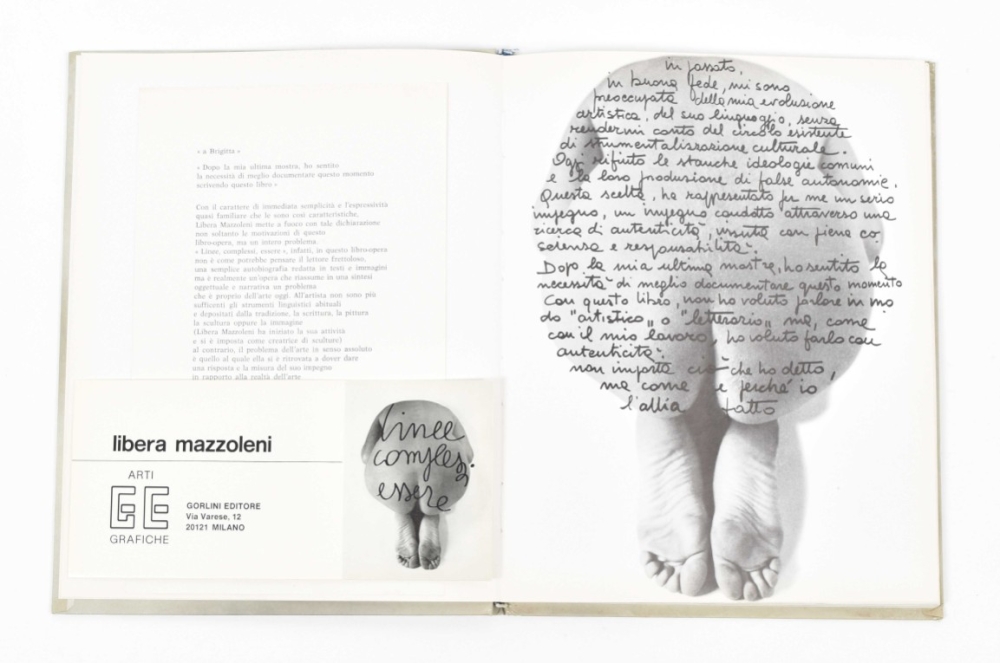 « a Brigitta »
« Dopo la mia ultima mostra, ho sentito
la necessità di meglio documentare questo momento
scrivendo questo libro »
Con il carattere di immediata semplicità e l'espressività
quasi familiare che le sono così caratteristiche,
Libera Mazzoleni mette a fuoco con tale dichiarazione
non soltanto le motivazioni di questo
libro-opera, ma un intero problema.
« Linee, complessi, essere », infatti, in questo libro-opera
non è come potrebbe pensare il lettore frettoloso,
una semplice autobiografia redatta in testi e immagini
ma è realmente un'opera che riassume in una sintesi
oggettuale e narrativa un problema
che è proprio dell'arte oggi. All'artista non sono più
sufficienti gli strumenti linguistici abituali
e depositati dalla tradizione, la scrittura, la pittura
la scultura oppure la immagine
(Libera Mazzoleni ha iniziato la sua attività
e si è imposta come creatrice di sculture)
al contrario, il problema dell'arte in senso assoluto
è quello al quale ella si è ritrovata a dover dare
una risposta e la misura del suo impegno
in rapporto alla realtà dell'arte
libera mazzoleni
ARTI
GE
GRAFICHE
GORLINI EDITORE
Via Varese, 12
20121 MILANO
linee
complessi
essere
in passato,
in buona fede, mi sono
preoccupata della mia evoluzione
artistica, del suo linguaggio, senza
rendermi conto del circolo esistente
di strumentalizzazione culturale.
Oggi rifiuto le stanche ideologie comuni
e la loro produzione di false autonomie.
Questa scelta, ha rappresentato per me un serio
impegno, un impegno condotto attraverso una
ricerca di autenticità, vissuta con piena co
scienza e responsabilità.
Dopo la mia ultima mostra, ho sentito la
necessità di meglio documentare questo momento
Con questo libro, non ho voluto parlare in mo
do "artistico" o "letterario" ma, come
con il mio lavoro, ho voluto farlo con
autenticità.
non importa ciò che ho detto,
ma come e perché io
l'abbia fatto